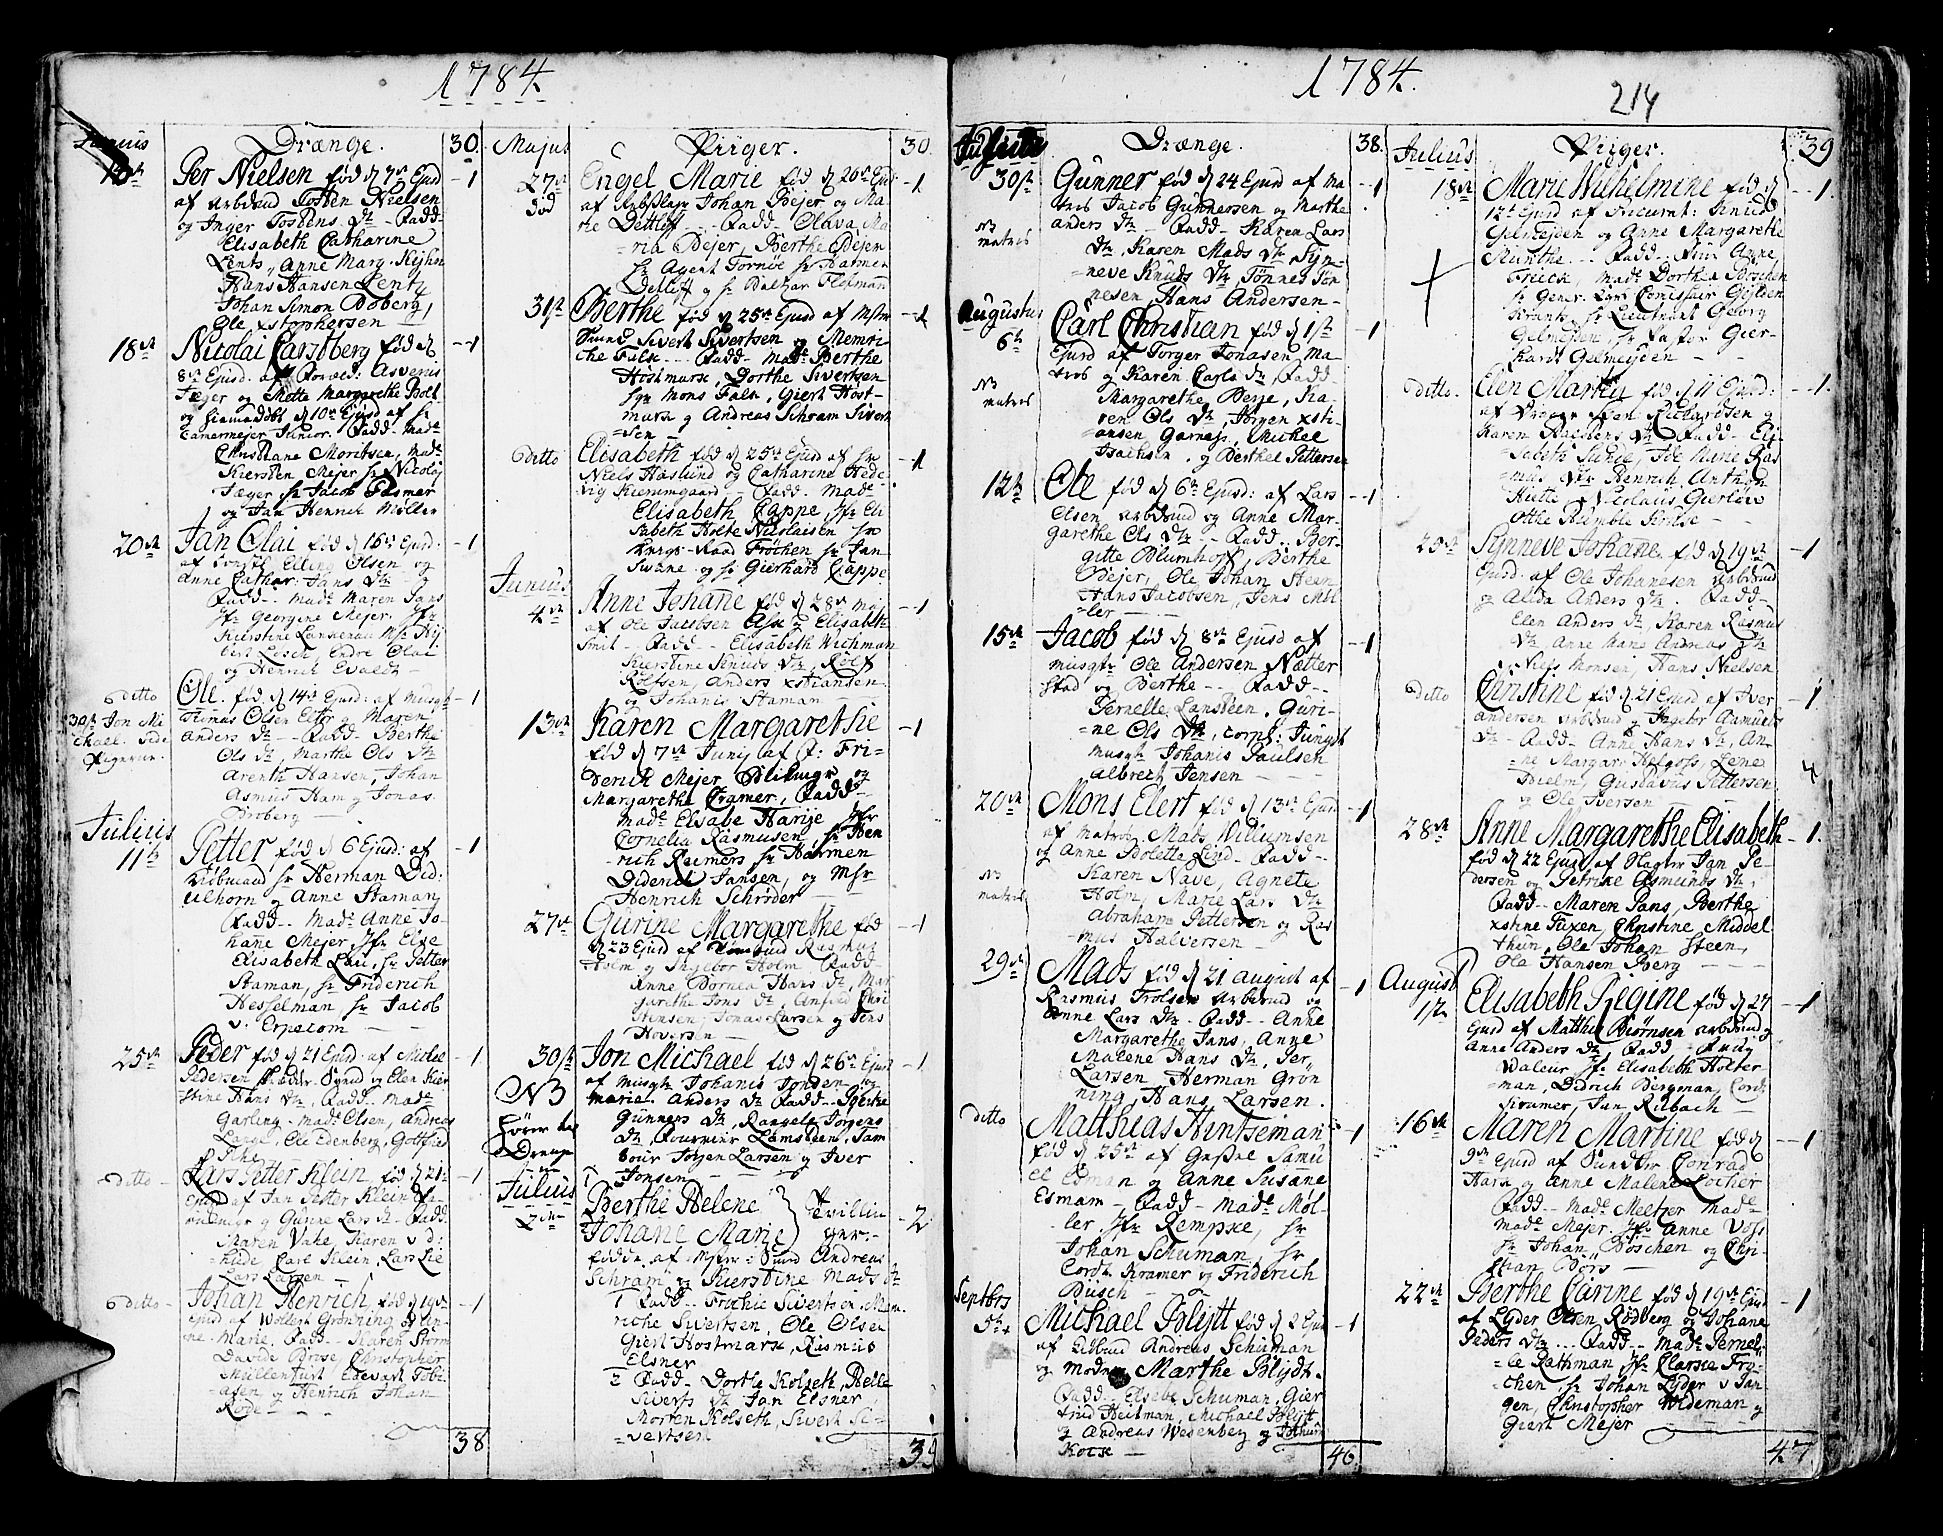 1784.
Junius
Drænge.
30.
Per Nielsen fød d 7de Ejusd
1
af arbdsud Tosten Nielsen
og Inger Tostens Dtr Fadd
Elisabeth Catharine
Lentz, Anne Marg. Kejhn
Hans Hansen Lentz
Johan Simon Boberg,
Ole xstophersen
18de
Nicolai Carstberg fød d
1
8de Ejusd. af Foræld: Asverus
Jæger og Mette Margarethe Bolt
og hiemdøbt d 10de Ejusd af Hr
Camermejer Junior. Fadd. Made
Christiane Moritsen, Made
Kiersten Mejer Hr Nicolaj
Jæger Hr Jacob Fasmer
og Jan Henrich Møller
20de
Jan Olai fød d 16de Ejusd.
1
Elling Olsen og
Anne Cathar: Jans Dtr
Fadd. Made Maren Jans
Jfr Georgine Mejer. Jfr
Kierstine
Lesch Endre Olai
og Henrich Evaldt
ditto
Ole. fød d 14de Ejusd: af Musqt
1
30te Jon Mi
chael. Side
Olsen Elter og Maren
Anders Dtr Fadd Berthe
Ols Dtr, Marthe Ols Dtr
Arenth Hansen, Johan
Asmus Ham og Jonas
Broberg
Julius
11te
Petter fød d 6 Ejusd: af
1
Hr Herman Did:
Uhorn og Anne Staman
Fadd. Made Anne Jo-
hanne Mejer Jfr Else
Elisabeth Lau, Hr Petter
Staman, Hr Friderich
Hesselman Hr Jacob
v. Erpecom
25de
Peder fød d 21 Ejusd: af Michel
1
Pedersen og Elen Kier
stine Hans Dtr, Fadd. Made
Garling. Made Olsen, Andreas
Lange, Ole Edenberg, Gottfried
Fiche
ditto
Lars Petter Klein fød d 21de
1
Ejusd af Jan Petter Klein
og Gunne Lars Dtr. Fadd.
Maren Vahe, Karen
Carl Klein, Lars Lie
Lars Larsen
ditto
Johan Henrich, fød d 19de
1
Ejusd af Wollert Grønning og
Marie. Fadd. Karen Storm
Davide Brose Christopher
Mullenfurt Edevart Tobi-
asen og Henrich Johan
Rode
38
Majus
Piiger.
30.
27de
død
Engel Marie fød d 26de Ejusd
1
af Arbsslaw Johan Bejer og Ma-
rie Detleff. Fadd. Olava Ma-
ria Bejer, Berthe Bejer
Hr Agent Fornøe Hr Harmen
Detleff og Hr Baltzar Flesman
31te
Berthe fød d 25de Ejusd af Mstr
1
Smed Sivert Sivertsen og Memri-
che Falk. Fadd. Made Berthe
Hostmark, Dorthe Sivertsen
Sgr Mons Falk, Giert Host-
mark og Andreas Schram Sivert-
sen
ditto
Elisabeth fød d 25de Ejusd af Hr
1
Niels Haslund og Catharine Hede-
vig Kiermgaard Fadd. Made
Elisabeth Cappe, Jfr Eli
sabeth Holte Nicolaisen Hr
Krigs-Raad Frøchen Hr Jan
Swane og Hr Gierhard Cappe
Junius
4de
Anne Johane fød d 28de Maj
1
af Ole Jacobsen Ask og Elisabeth
Smit. Fadd. Elisabeth Wichman
Kierstine Knuds Dtr, Rolf
Rolfsen, Anders xstiansen
og Johanis Staman
13de
Karen Margarethe
1
fød d 7de Junij af S: Fri-
derich Mejer Blikmgr og
Margarethe Cramer, Fadd.
Made Elsabe Harije Jfr
Cornelia Rasmusen, Hr Hen
rich Reimers Hr Harmen
Diderich Jansen, og Msr
Henrich Schrøder
27de
Gurine Margarethe fød
1
d 23 Ejusd af Rasmus
Holm og Ingebor Holm. Fadd
Anne Dorthea Hans Dtr, Mar
garethe Jons Dtr, Anfind Chri
stensen Jonas Larsen og Jens
Hoversen
30te
NB
hører til
Drenge
Jon Michael fød d 26de Ejusd
1
af Musqt Johanis Jonsen og
Marie. Anders Dtr Fadd. Børke
Gunners Dtr, Rangele Jørgens
Dtr, Fourneer Lamsteen, Tam
bour Jørgen Larsen og Iver
Jonsen
Julius
2den
Berthe Helene
Johane Marie
Tvillin
ger.
2
fødde af Mstr: Smed Andreas
Schram og Kierstine Mads Dtr
1 Fadd. Frochie Sivertsen, Mem-
riche Sivertsen, Ole Olsen
Giert Hostmark, Rasmus
Elsner
2 Fadd. Dorthe Kolseth, Pelle
Siverts Dtr Jan Elsner
Morten Kolseth, Sivert Si-
vertsen
39
1784.
214
Julius
Drænge.
38.
30te
Gunner fød d 24 Ejusd af Ma
1
NB
matros
tros Jacob Gunnersen og Marthe
Anders Dtr Fadd. Karen Lars
Dtr, Karen Mads Dtr, Syn-
neve Knuds Dtr, Tønnes Tøn
nesen, Hans Andersen
Augustus
6te
Carl Christian fød d 1ste
1
NB
matros
Ejusd af Torger Jonasen, Ma
tros og Karen Carls Dtr, Fadd.
Margarethe Berje, Ka
ren Ols Dtr, Jørgen xsti-
ansen Garnass, Michel
Isachsen, og Berthel Pettersen
12te
Ole fød d 6te Ejusd: af Lars
1
Olsen arbdsud og Anne Mar-
garethe Ols Dtr. Fadd. Ber-
gitte Blumhoff, Berthe
Bejer, Ole Johan Steen
Hans Jacobsen, Jens Møl-
ler
15de
Jacob fød d 8de Ejusd af
1
Musqtr Ole Andersen Nætter
stad og Berthe. Fadd.
Pernelle Lansteen, Guri-
ne Ols Dtr, Corpl: Jungst
Musqt Johanis Paulsen
Albrect Jensen
20de
Mons Elert fød d 13de Ejusd
1
NB
matros
af Matros Mads Willumsen
og Anne Bolette Lind. Fadd.
Karen Nave, Agnete
Holm, Marie Lars Dtr
Abraham Pettersen og Ras
mus Halversen
29de
Mads fød d 21 August af
1
Rasmus Trolsen arbdsud og
Anne Lars Dtr. Fadd. Anne
Margarethe Jans, Anne
Malene Hans Dtr, Per
Larsen Herman Grøn
ning, Hans Larsen.
ditto
Matthias Hintseman
1
fød d 25de af Samu
el Esman og Anne Susane
Esmam. Fadd. Made Møl-
ler, Jfr Rempke, Hr
Johan Schuman, Hr
Cordt Kramer og Friderich
Busch
Septbrs
5te
Michael Blytt fød d 2 Ejusd
1
af Andreas Schuman
og Moder Marthe Blydt.
Fadd. Elsebe Schuman, Gier
trud Heitman, Michael Blytt
og Andreas Wedenberg og
Kock
46
Julius
Piiger.
39
18de
Marie Wilhelmine fød d
1.
12te Ejusd af Procurat: Knud
Gelmejden og Anne Margarethe
Munthe. Fadd. Frue Anne
Frieck, Made Dorthea Boschen
Hr Gener. Comissair Gelden
Krantz Hr Lieutnant Georg
Gelmejden, Hr Pastor Gier-
hardt Gelmejden
ditto.
Elen Martha fød d 11 Ejusd:
1.
af Richardsen og
Karen Dtr. Fadd. Eli-
sabeth Ide Marie Ras
mus Dtr Henrich Anthon
Hütte, Nicolaus Gierløw
Otthe Rumble Kruse
25de
Synneve Johane fød d 19de
1
Ejusd. af Ole Johanesen arbdsud
og Alida Anders Dtr. Fadd.
Elen Anders Dtr, Karen Rasmus
Dtr Anne Mane Andreas Dtr
Niels Monsen, Hans Nielsen
ditto
Christine fød d 21 Ejusd af Iver
1
Andersen arbdsud og Ingebor Asmunds
Dtr Fadd. Anne Hans Dtr, An-
ne Margar: Hofgoss, Lene
Bielm, Gustavus Pettersen
og Ole Iversen
28de
Anne Margarethe Elisabeth
1.
fød d 22 Ejusd af Jan Pe-
dersen og Petrike Asmunds Dtr,
Fadd. Maren Jans, Berthe
xstine Fuxen, Christine Middel
thun, Ole Johan Steen,
Ole Hansen Berg
August
1ste
Elisabeth Regine fød d 27
1
Ejusd af Matthis Biørnsen arbdsud og
Anne Anders Dtr Fadd. Frue
Waleur Jfr Elisabeth Holter-
man, Didrich Bergman, Cordt
Kramer, Jan Rubach
16de
Maren Martine fød d
1
9de Ejusd af Conrad
Hara og Anne Malene Locher
Fadd. Made Meltzer Made
Made Mejer, Jfr Anne Voss
Hr Johan Boschen og Chri-
stian Børs
22de
Berthe Carine fød d 19de Ejusd
1
af Lyder Olsen Rødberg og Johane
Peders Dtr. Fadd. Made Pernel-
le Rathman, Jfr Clarsie Frø-
chen Hr Johan Lyder v Tan-
gen, Christopher Wideman og
Giert Mejer
47